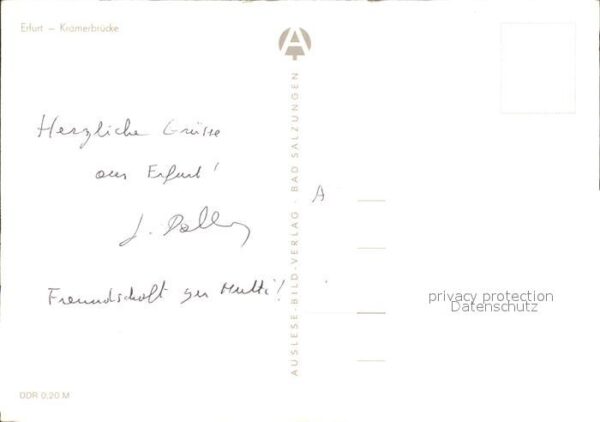 Erfurt — Krämerbrücke
Herzliche Grüsse
aus Erfurt!
J.
Freundschaft zur Mutti!
DDR 0,20 M
A
AUSLESE-BILD-VERLAG · BAD SALZUNGEN
A
privacy protection
Datenschutz